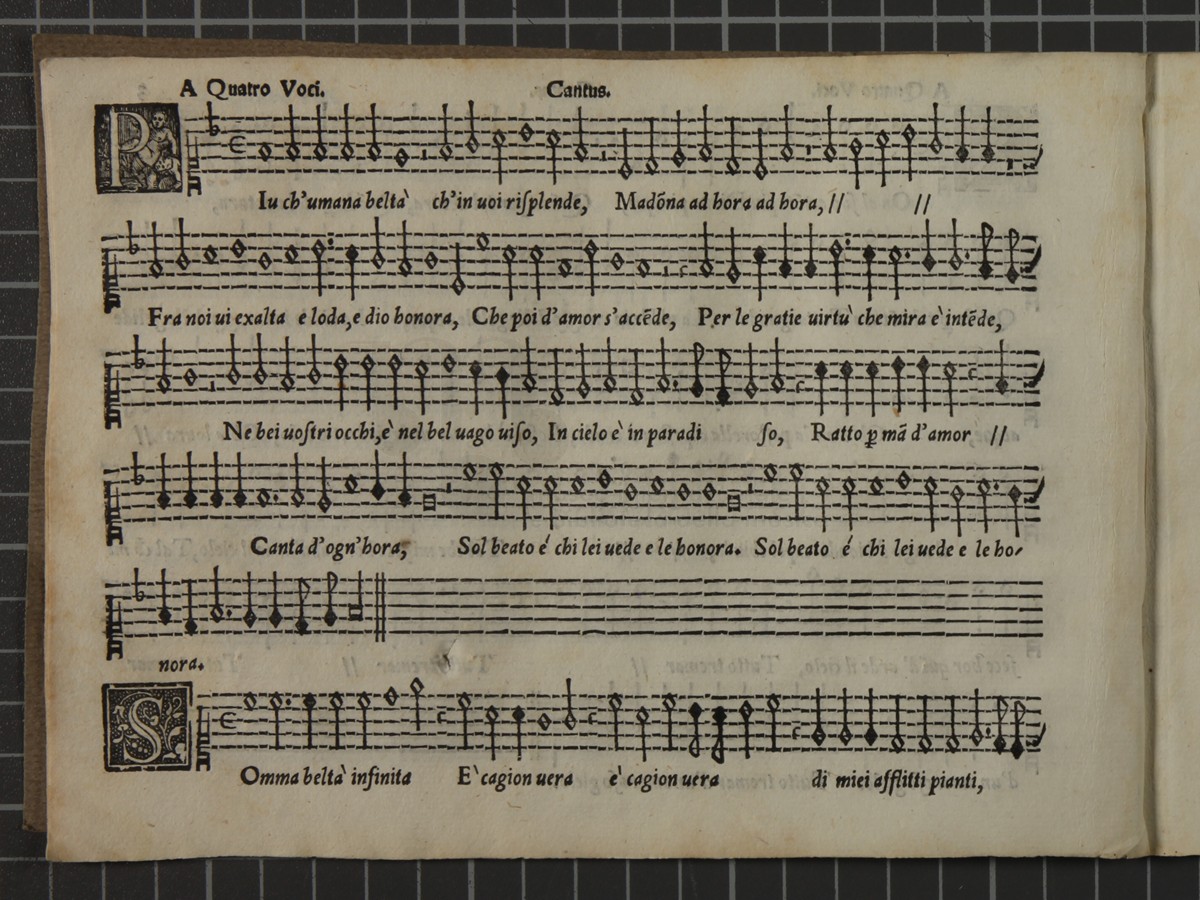 A Quatro Voci. Cantus.
PIu ch'umana beltà ch'in uoi riſplende, Madōna ad hora ad hora, // //
Fra noi ui exalta e loda, e dio honora, Che poi d'amor s'accēde, Per le gratie uirtù che mira è intēde,
Ne bei uoſtri occhi, è nel bel uago uiſo, In cielo è in paradi ſo, Ratto ꝑ mā d'amor //
Canta d'ogn'hora, Sol beato é chi lei uede e le honora. Sol beato é chi lei uede e le ho-
nora.
SOmma beltà infinita E' cagion uera è cagion uera di miei afflitti pianti,